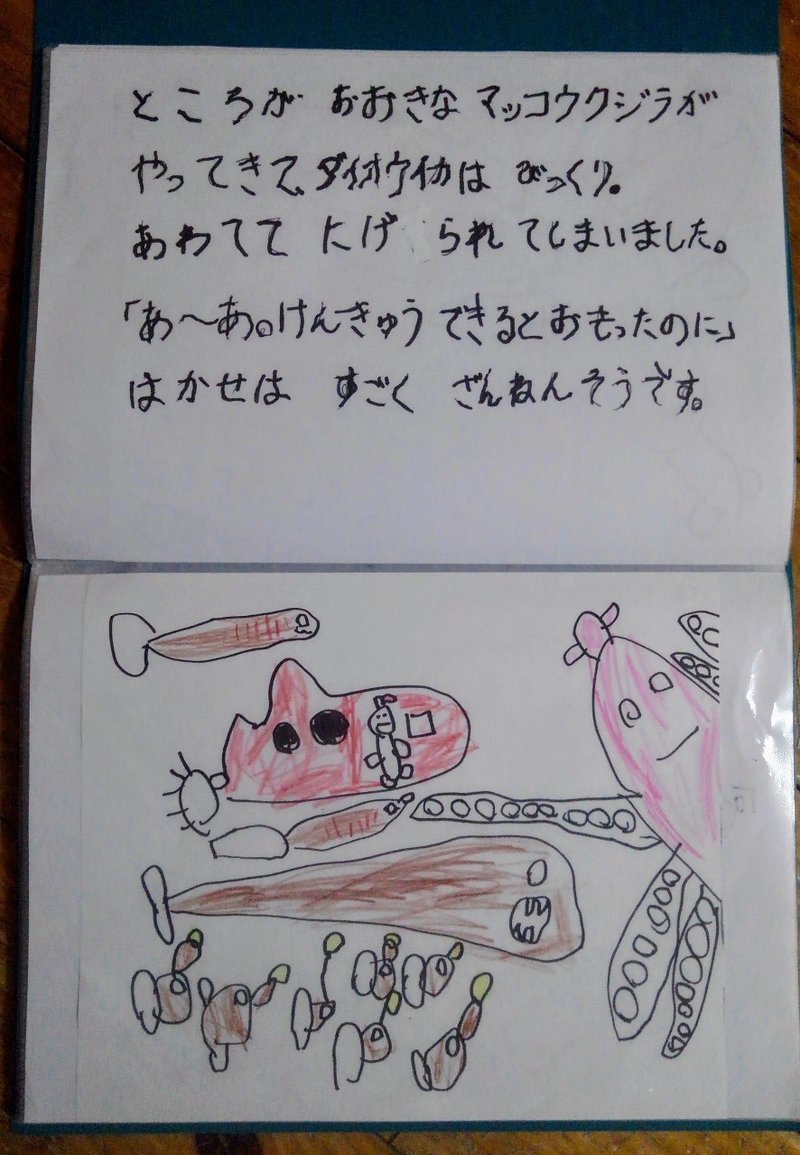 ところが おおきな マッコウクジラが
やってきて、ダイオウイカは びっくり。
あわてて にげ られてしまいました。
「あ〜あ。けんきゅう できるとおもったのに」
はかせは すごく ざんねんそうです。